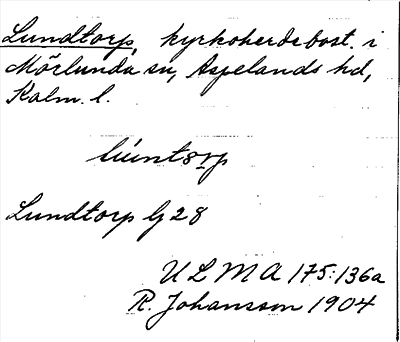 Lundtorp, kyrkoherdebost. i
Mörlunda sn, Aspelands hd,
Kalm. l.
Lundtorp G 28
U L M A 175:136a
R. Johansson 1904